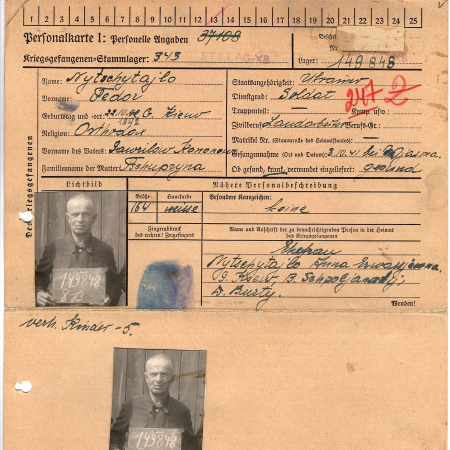 1 2 3 4 5 6 7 8 9 10 11 12 13 14 15 16 17 18 19 20 21 22 23 24 25
Personalkarte I: Personelle Angaben 37108
Kriegsgefangenen-Stammlager: 343
Beschr
Nr.
Lager: 149848
Des Kriegsgefangenen
Name: Nytschytajlo
Vorname: Fedor
Geburtstag und -ort: G. Kiew
1892
Religion: Orthodox
Vorname des Vaters: Hawrilow
Familienname der Mutter: Tschupryna
Staatsangehörigkeit: Ukrainer
Dienstgrad: Soldat
247 2
Truppenteil: Komp. usw.:
Zivilberuf: Landarbeiter Berufs-Gr.:
Matrikel Nr. (Stammrolle des Heimatstaates): —
Gefangennahme (Ort und Datum): 3.10.41 bei Wjasma
Ob gesund, krank, verwundet eingeliefert: gesund
Lichtbild
Größe
Haarfarbe
164
weiss
Fingerabdruck
des rechten! Zeigefingers
Nähere Personalbeschreibung
Besondere Kennzeichen:
keine
Name und Anschrift der zu benachrichtigenden Person in der Heimat
des Kriegsgefangenen
Ehefrau
Nytschytajlo Anna
G. Kiew, B. Schpoljanskyj,
D. Burty.
Wenden!
149848
873
verh. Kinder - 5.
149848